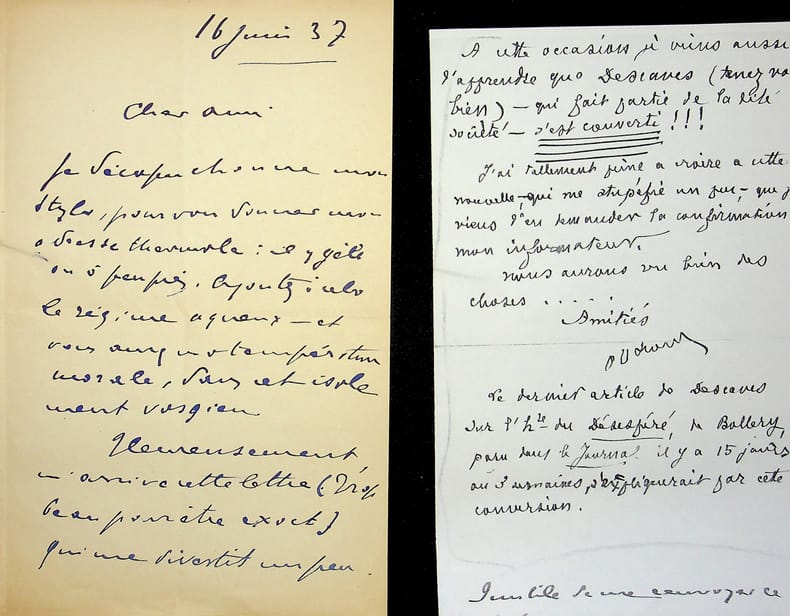 16 juin 37
Cher ami
Je décapuchonne mon
stylo, pour vous donner mon
adresse thermale : il y gèle
ou à peu près. Ajoutez à cela
le régime aqueux — et
vous aurez ma température
morale, dans cet isole
ment vosgien
Heureusement
m'arrive cette lettre (Trop
beau pour être exact)
qui me divertit un peu.
A cette occasion je viens aussi
d'apprendre que Descaves (tenez vo
bien) — qui fait partie de la dite
société — s'est converti !!!
J'ai tellement peine a croire a cette
nouvelle, qui me stupéfie un peu, que j
viens d'en demander la confirmation
mon informateur.
nous aurons vu bien des
choses . . . . .
Amitiés
Le dernier article de Descaves
sur l'hre du Désespéré, de Bollery,
paru dans le Journal il y a 15 jours
ou 3 semaines, s'expliquerait par cette
conversion.
Inutile de me renvoyer ce